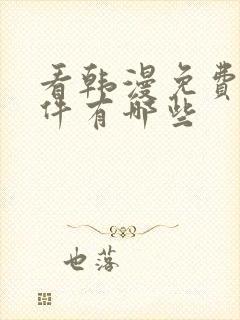 看韩漫免费
件有哪些
也落